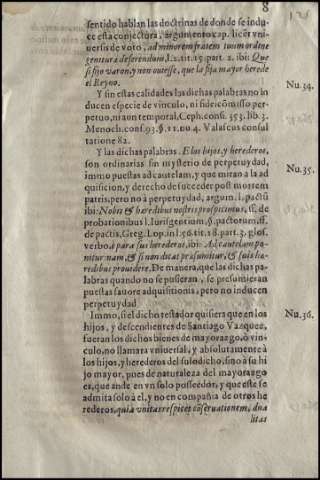 8
sentido hablan las doctrinas de donde se indu-
ce esta conjectura, argumento cap. licet vni-
uersis de voto, ad minorem fratem
genitura deferendum, l. 2. tit. 15. part. 2. ibi: Que
si fijo varon, y non ouiesse, que la fija mayor herede
el Reyno.
Y sin estas calidades las dichas palabras no in
ducen especie de vinculo, ni fideicõmisso per-
petuo, ni aon temporal, Ceph. cons. 353. lib. 3.
Menoch. cons. 93. §. 11. no 4. Valascus consul
tatione 82.
Y las dichas palabras. E los hijos, y herederos,
son ordinarias sin mysterio de perpetuydad,
immo puestas ad cautelam, y que miran a la ad
quisicion, y derecho de suceder post mortem
patris, pero no à perpetuydad, argum. l. pactũ
ibi: Nobis & heredibus nostris prospicimus, ff. de
probationibus l. Iurisgentium. §. pactorum ff.
de pactis, Greg. Lop. in l. 56. tit. 18. part. 3. glos.
verbo, è para sus herederos, ibi: Ad cautelam po-
nitur nam, & si non dicat præsumitur, & suis hæ-
redibus prouidere. De manera, que las dichas pa-
labras quando no se pusieran, se presumieran
puestas fauore adquisitionis, pero no inducen
perpetuydad
Immo, si el dicho testador quisiera que en los
hijos, y descendientes de Santiago Vazquez,
fueran los dichos bienes de mayorazgo, ò vin-
culo, no llamara vniuersal, y absolutamente à
los hijos, y herederos del susodicho, sino à su hi
jo mayor, pues de naturaleza del mayorazgo
es, que ande en vn solo posseedor, y que este se
admita solo à el, y no en compañia de otros he
rederos, quia vnitas respicit cõseruationem, dua
litas
Nu. 34.
Nu. 35.
Nu. 36.